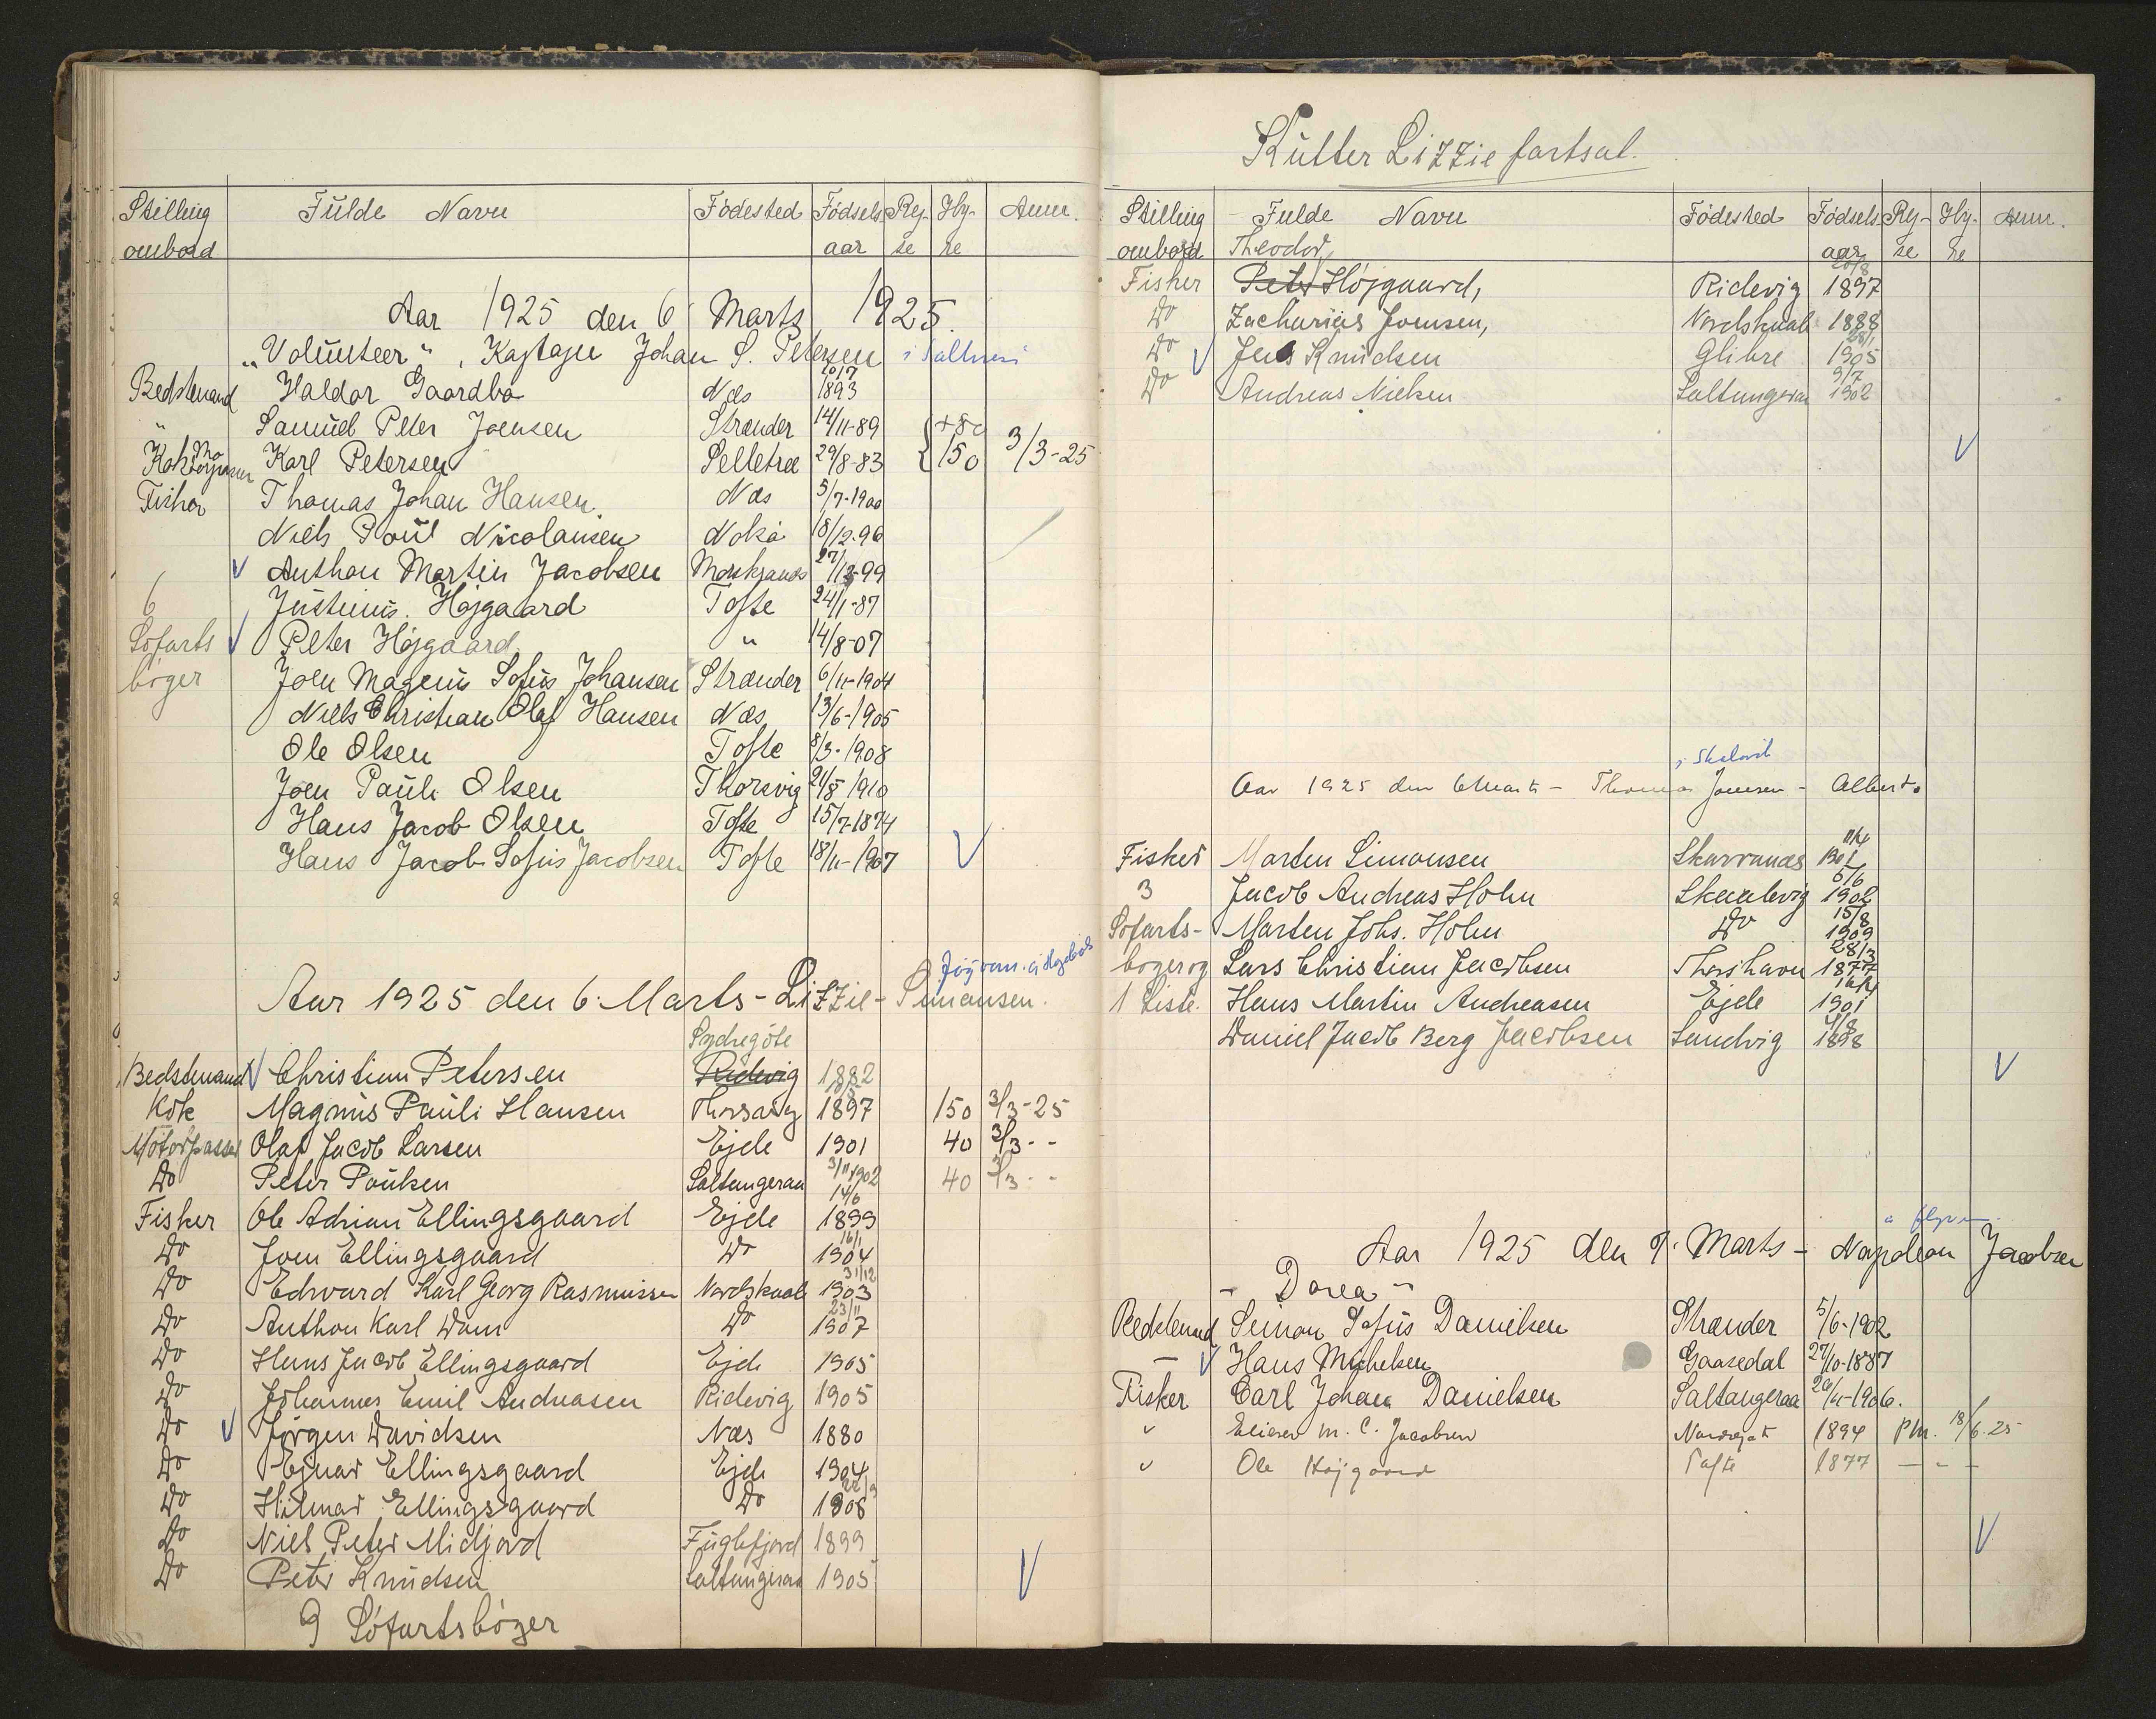 Stilling Fulde Navn Fødested Fødsels Rej- Hy- Anm.
ombord aar se re
Aar 1925 den 6 Marts 1925.
"Volunteer", Kaptajn Johan S. Petersen
Bedstemand Haldor Gaardbo Næs 1893
" Samuel Peter Joensen Strænder 14/11-89
Kok Karl Petersen Selletræ 29/8-83 150 3/3-25
Fisker Thomas Johan Hansen Næs 5/7-1900
Niels Poul Nicolaisen 18/12-96
Anthon Martin Jacobsen 27/12-99
6 Justinus Højgaard Tofte 24/1-87
Søfarts Peter Højgaard " 14/8-07
bøger Joen Magnus Sofus Johansen Strænder 6/11-1904
Niels Christian Olaf Hansen Næs 13/6-1905
Ole Olsen Tofte 8/3-1908
Joen Pauli Olsen Thorsvig 21/8 1910
Hans Jacob Olsen Tofte 15/7-1874
Hans Jacob Sofus Jacobsen Tofte 18/11-1907
Aar 1925 den 6. Marts - Lizzie - Simonsen.
Sydregøte
Bedstemand Christian Petersen Ridevig 1882
Kok Magnus Pauli Hansen Thorsvig 1897 150 3/3-25
Motorpasser Olaf Jacob Larsen Ejde 1901 40 3/3 - -
Do Peter Poulsen Saltangeraa 3/11 1902 40 3/3 - -
14/6
Fisker Ole Adrian Ellingsgaard Ejde 1899
16/1
Do Joen Ellingsgaard Do 1904
31/12
Do Edvard Karl Georg Rasmussen Nordskaale 1903
23/11
Do Anthon Karl Dam Do 1907
Do Hans Jacob Ellingsgaard Ejde 1905
Do Johannes Emil Andreasen Ridevig 1905
Do Jørgen Davidsen Næs 1880
Do Ejnar Ellingsgaard Ejde 1904
Do Hilmar Ellingsgaard Do 1908
Do Niels Peter Midjord Fuglefjord 1899
Do Peter Knudsen Saltangeraa 1905
9 Søfartsbøger
Kutter Lizzie fortsat.
Stilling Fulde Navn Fødested Fødsels Rej- Hy- Anm.
ombord Theodor, aar se re
Fisker Peter Højgaard, Ridevig 1897
Do Zacharias Joensen, Nordskaale 1888
Do Jens Knudsen Glibre 1905
9/7
Do Andreas Nielsen Saltangeraa 1902
Aar 1925 den 6 Marts - Thomas Joensen - Alberto
Fisker Morten Simonsen Skarvanes
5/6
3 Jacob Andreas Holm Skaalevig 1902
15/8
Søfarts- Morten Johs. Holm Do 1909
28/3
bøger og Lars Christian Jacobsen Thorshavn 1877
1 Liste. Hans Martin Andreasen Ejde 1901
Daniel Jacob Berg Jacobsen Sandvig 1898
Aar 1925 den 9. Marts - Napoleon Jacobsen
- Dorea -
Bedstemand Simon Sofus Danielsen Strænder 5/6-1902
- Hans Michelsen Gaasedal 27/10-1887
Fisker Carl Johan Danielsen Saltangeraa 29/11-1906.
" M. C. Jacobsen 1894 Pm. 18/6.25
" Ole Højgaard Tofte 1877 - - -